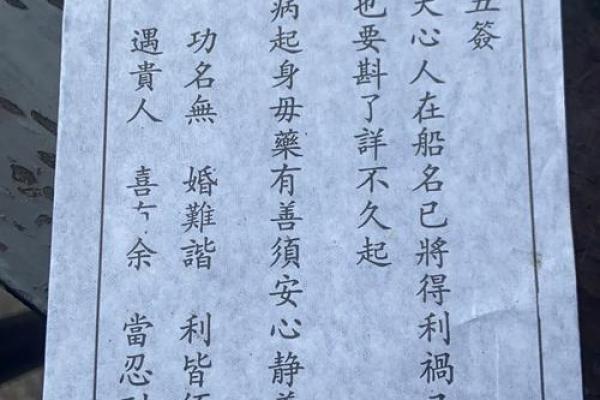 五簽
天心人在船名已將得利禍
也要斟了詳不久起
病起身毋藥有善須安心静養
功名無 婚難諧 利皆
遇貴人 喜有余 當忍